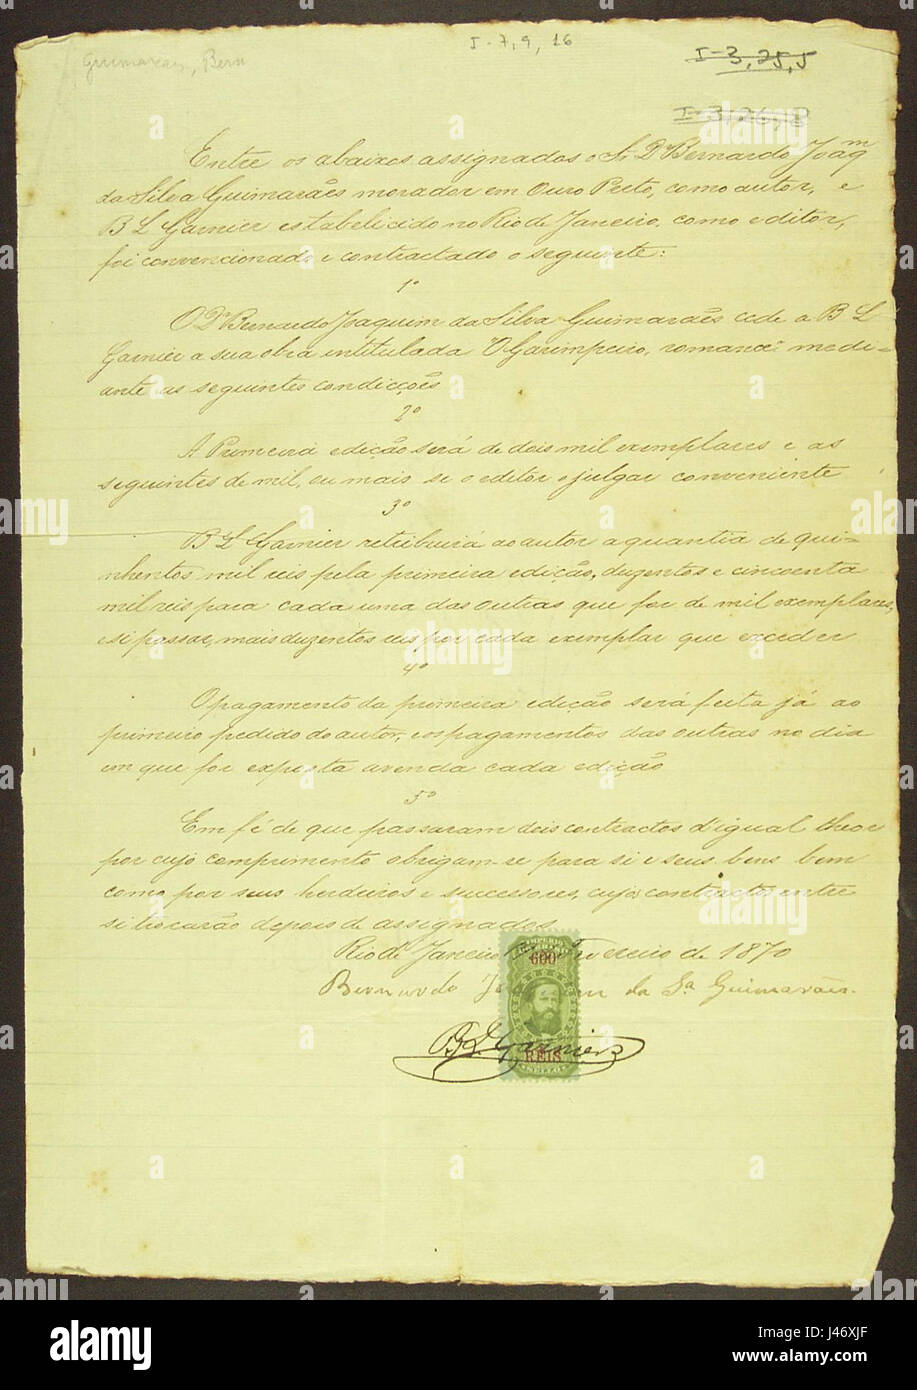 Guimarães, Bern
I-7,9,16
I-3,25,5
I-3,26,8
Entre os abaixos assignados o Sr. Dr Bernardo Joaqm
da Silva Guimarães morador em Ouro Preto, como autor, e
B L Garnier estabelecido no Rio de Janeiro, como editor,
foi convencionado e contractado o seguinte:
1º
O Dr Bernardo Joaquim da Silva Guimarães cede a B L
Garnier a sua obra intitulada "O Garimpeiro, romance" medi-
ante as seguintes condicções
2º
A Primeira edição será de dois mil exemplares e as
seguintes de mil, ou mais se o editor o julgar conveniente
3º
B L Garnier retribuirá ao autor a quantia de qui-
nhentos mil reis pela primeira edição, duzentos e cincoenta
mil reis para cada uma das outras que for de mil exemplares,
e si passar, mais duzentos reis por cada exemplar que exceder
4º
O pagamento da primeira edição será feita já ao
primeiro pedido do autor, e os pagamentos das outras no dia
em que for exposta a venda cada edição
5º
Em fé de que passaram dois contractos d'igual theor
por cujo comprimento obrigam-se para si e seus bens bem
como por seus herdeiros e successores, cujos contractos entre
si trocarão depois de assignados
Rio de Janeiro Fevereiro de 1870
Bernardo Joaquim da Sa Guimarães
B. L. Garnier
IMPERIO DO BRASIL
600
REIS
SELLO
alamy
Image ID: J46XJF
www.alamy.com